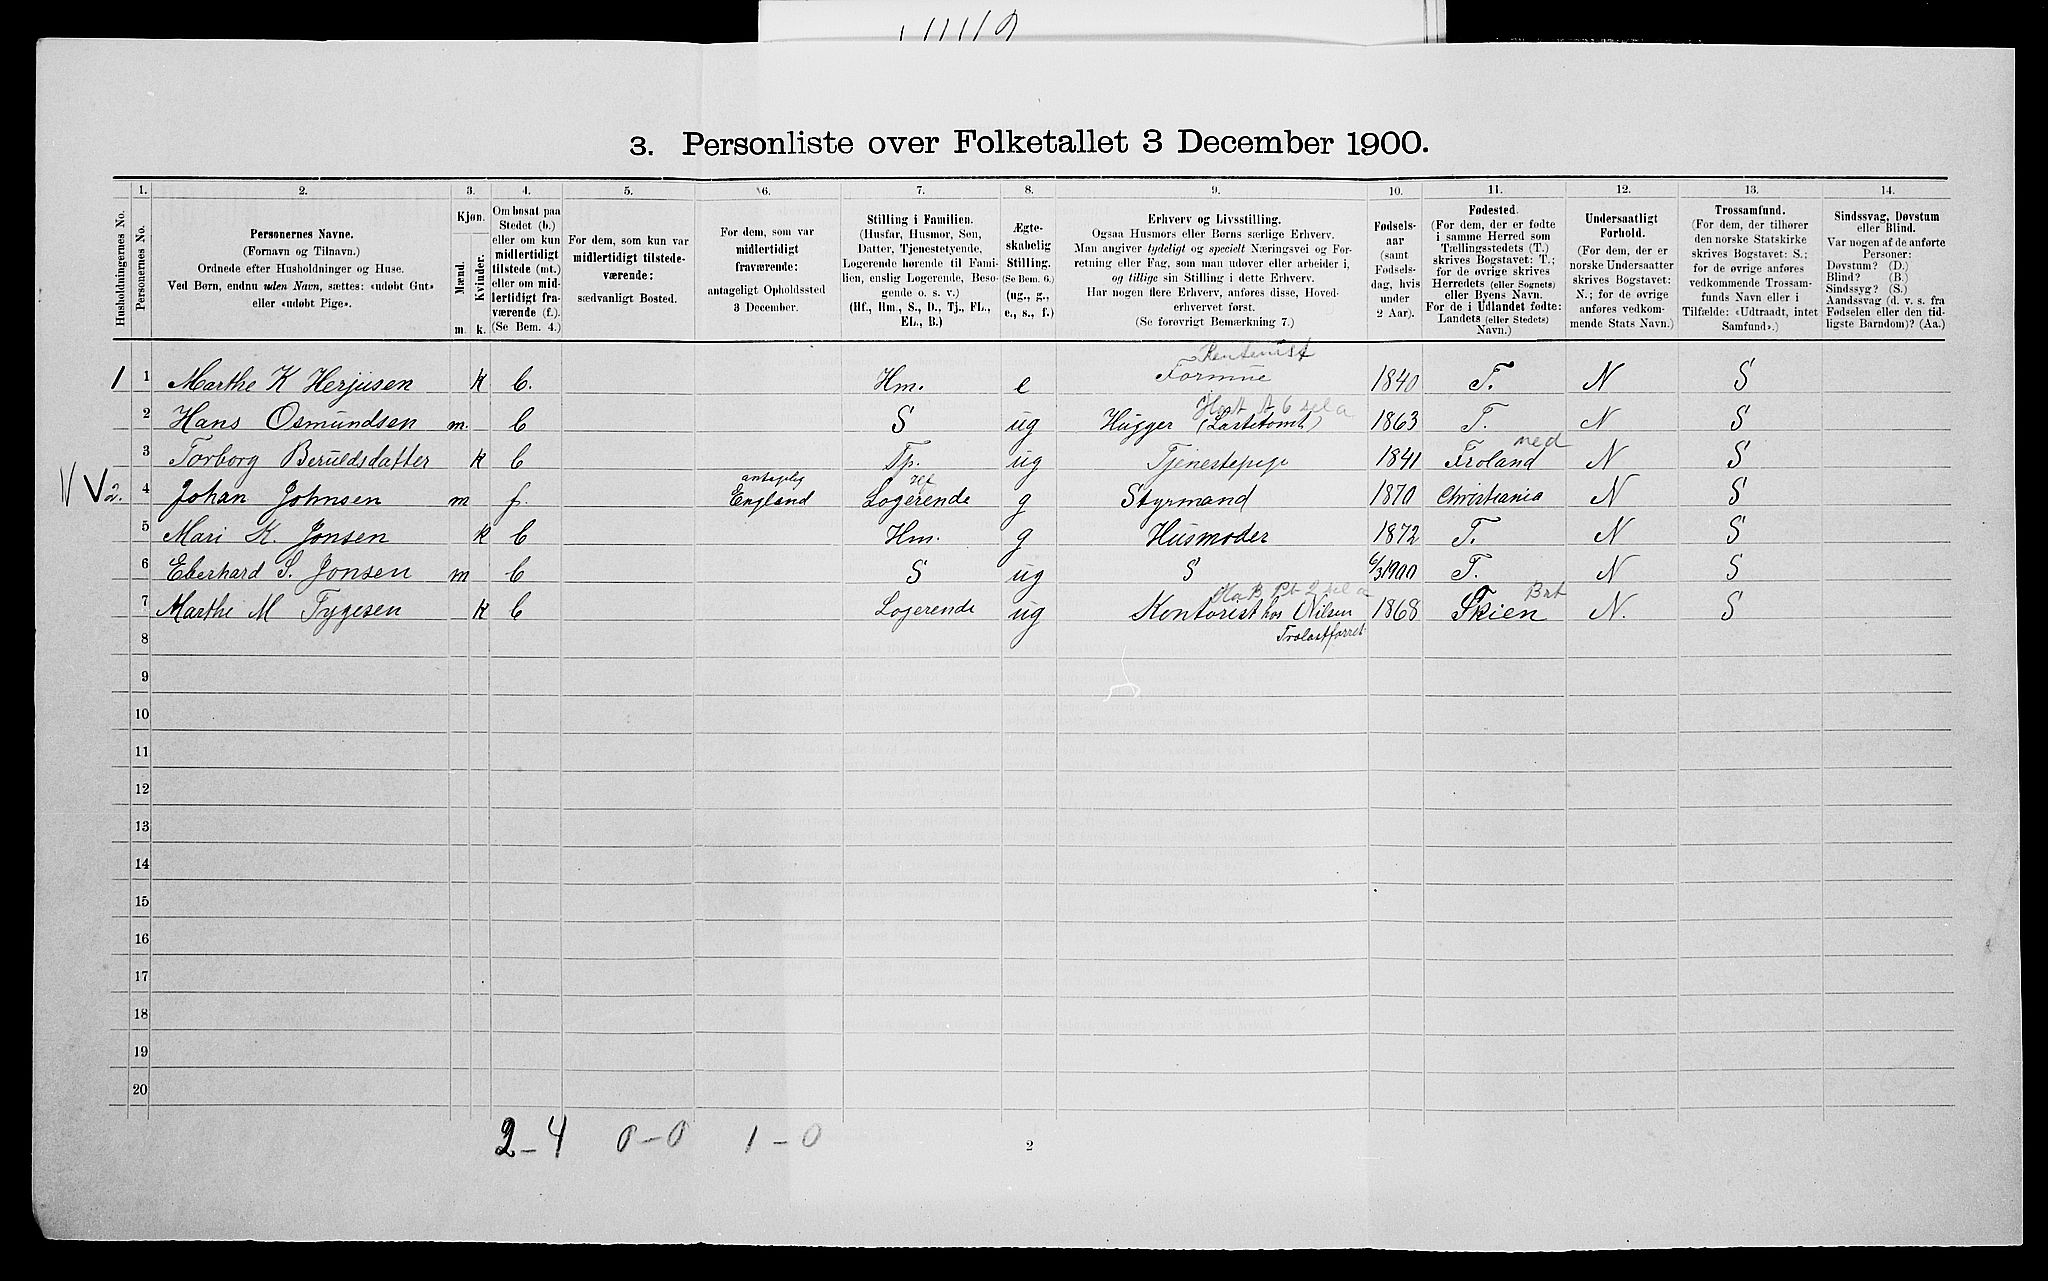 3. Personliste over Folketallet 3 December 1900.
Husholdningernes No.
1.
Personernes No.
2.
Personernes Navne.
(Fornavn og Tilnavn.)
Ordnede efter Husholdninger og Huse.
Ved Børn, endnu uden Navn, sættes: «udøbt Gut»
eller «udøbt Pige».
3.
Kjøn.
Mænd.
Kvinder.
m. k.
4.
Om bosat paa
Stedet (b.)
eller om kun
midlertidigt
tilstede (mt.)
eller om mid-
lertidigt fra-
værende (f.).
(Se Bem. 4.)
5.
For dem, som kun var
midlertidigt tilstede-
værende:
sædvanligt Bosted.
6.
For dem, som var
midlertidigt
fraværende:
antageligt Opholdssted
3 December.
7.
Stilling i Familien.
(Husfar, Husmor, Søn,
Datter, Tjenestetyende,
Logerende hørende til Fami-
lien, enslig Logerende, Besø-
gende o. s. v.)
(Hf., Hm., S., D., Tj., FL.,
EL., B.)
8.
Ægte-
skabelig
Stilling.
(Se Bem. 6.)
(ug., g.,
e., s., f.)
9.
Erhverv og Livsstilling.
Ogsaa Husmors eller Børns særlige Erhverv.
Man angiver tydeligt og specielt Næringsvei og For-
retning eller Fag, som man udøver eller arbeider i,
og tillige sin Stilling i dette Erhverv.
Har nogen flere Erhverv, anføres disse, Hoved-
erhvervet først.
(Se forøvrigt Bemærkning 7.)
10.
Fødsels-
aar
(samt
Fødsels-
dag, hvis
under
2 Aar).
11.
Fødested.
(For dem, der er fødte
i samme Herred som
Tællingsstedets (T.)
skrives Bogstavet: T.;
for de øvrige skrives
Herredets (eller Sognets)
eller Byens Navn.
For de i Udlandet fødte:
Landets (eller Stedets)
Navn.)
12.
Undersaatligt
Forhold.
(For dem, der er
norske Undersaatter
skrives Bogstavet:
N.; for de øvrige
anføres vedkom-
mende Stats Navn.)
13.
Trossamfund.
(For dem, der tilhører
den norske Statskirke
skrives Bogstavet: S.;
for de øvrige anføres
vedkommende Trossam-
funds Navn eller i
Tilfælde: «Udtraadt, intet
Samfund».)
14.
Sindssvag, Døvstum
eller Blind.
Var nogen af de anførte
Personer:
Døvstum? (D.)
Blind? (B.)
Sindssyg? (S.)
Aandssvag (d. v. s. fra
Fødselen eller den tid-
ligste Barndom)? (Aa.)
Rentenist
1 1 Marthe K Herjusen k b. Hm. e Formue 1840 T. N S
2 Hans Osmundsen m. b S ug Hugger (Lastetomt) 1863 T. N S
ned
3 Torborg Beruldsdatter k b Tp. ug Tjenestepige 1841 Froland N S
antagelig Hf
2. 4 Johan Johnsen m f. England Logerende g Styrmand 1870 Christiania N S
5 Mari K. Jonsen k b Hm. g Husmoder 1872 T. N S
6 Eberhard S. Jonsen m b S ug S 6/3 1900 T. N S
7 Marthe M Tygesen k b Logerende ug Kontorist hos Nilsen 1868 Skien N. S
Trælastforret.
8
9
10
11
12
13
14
15
16
17
18
19
20
2-4 0-0 1-0
2